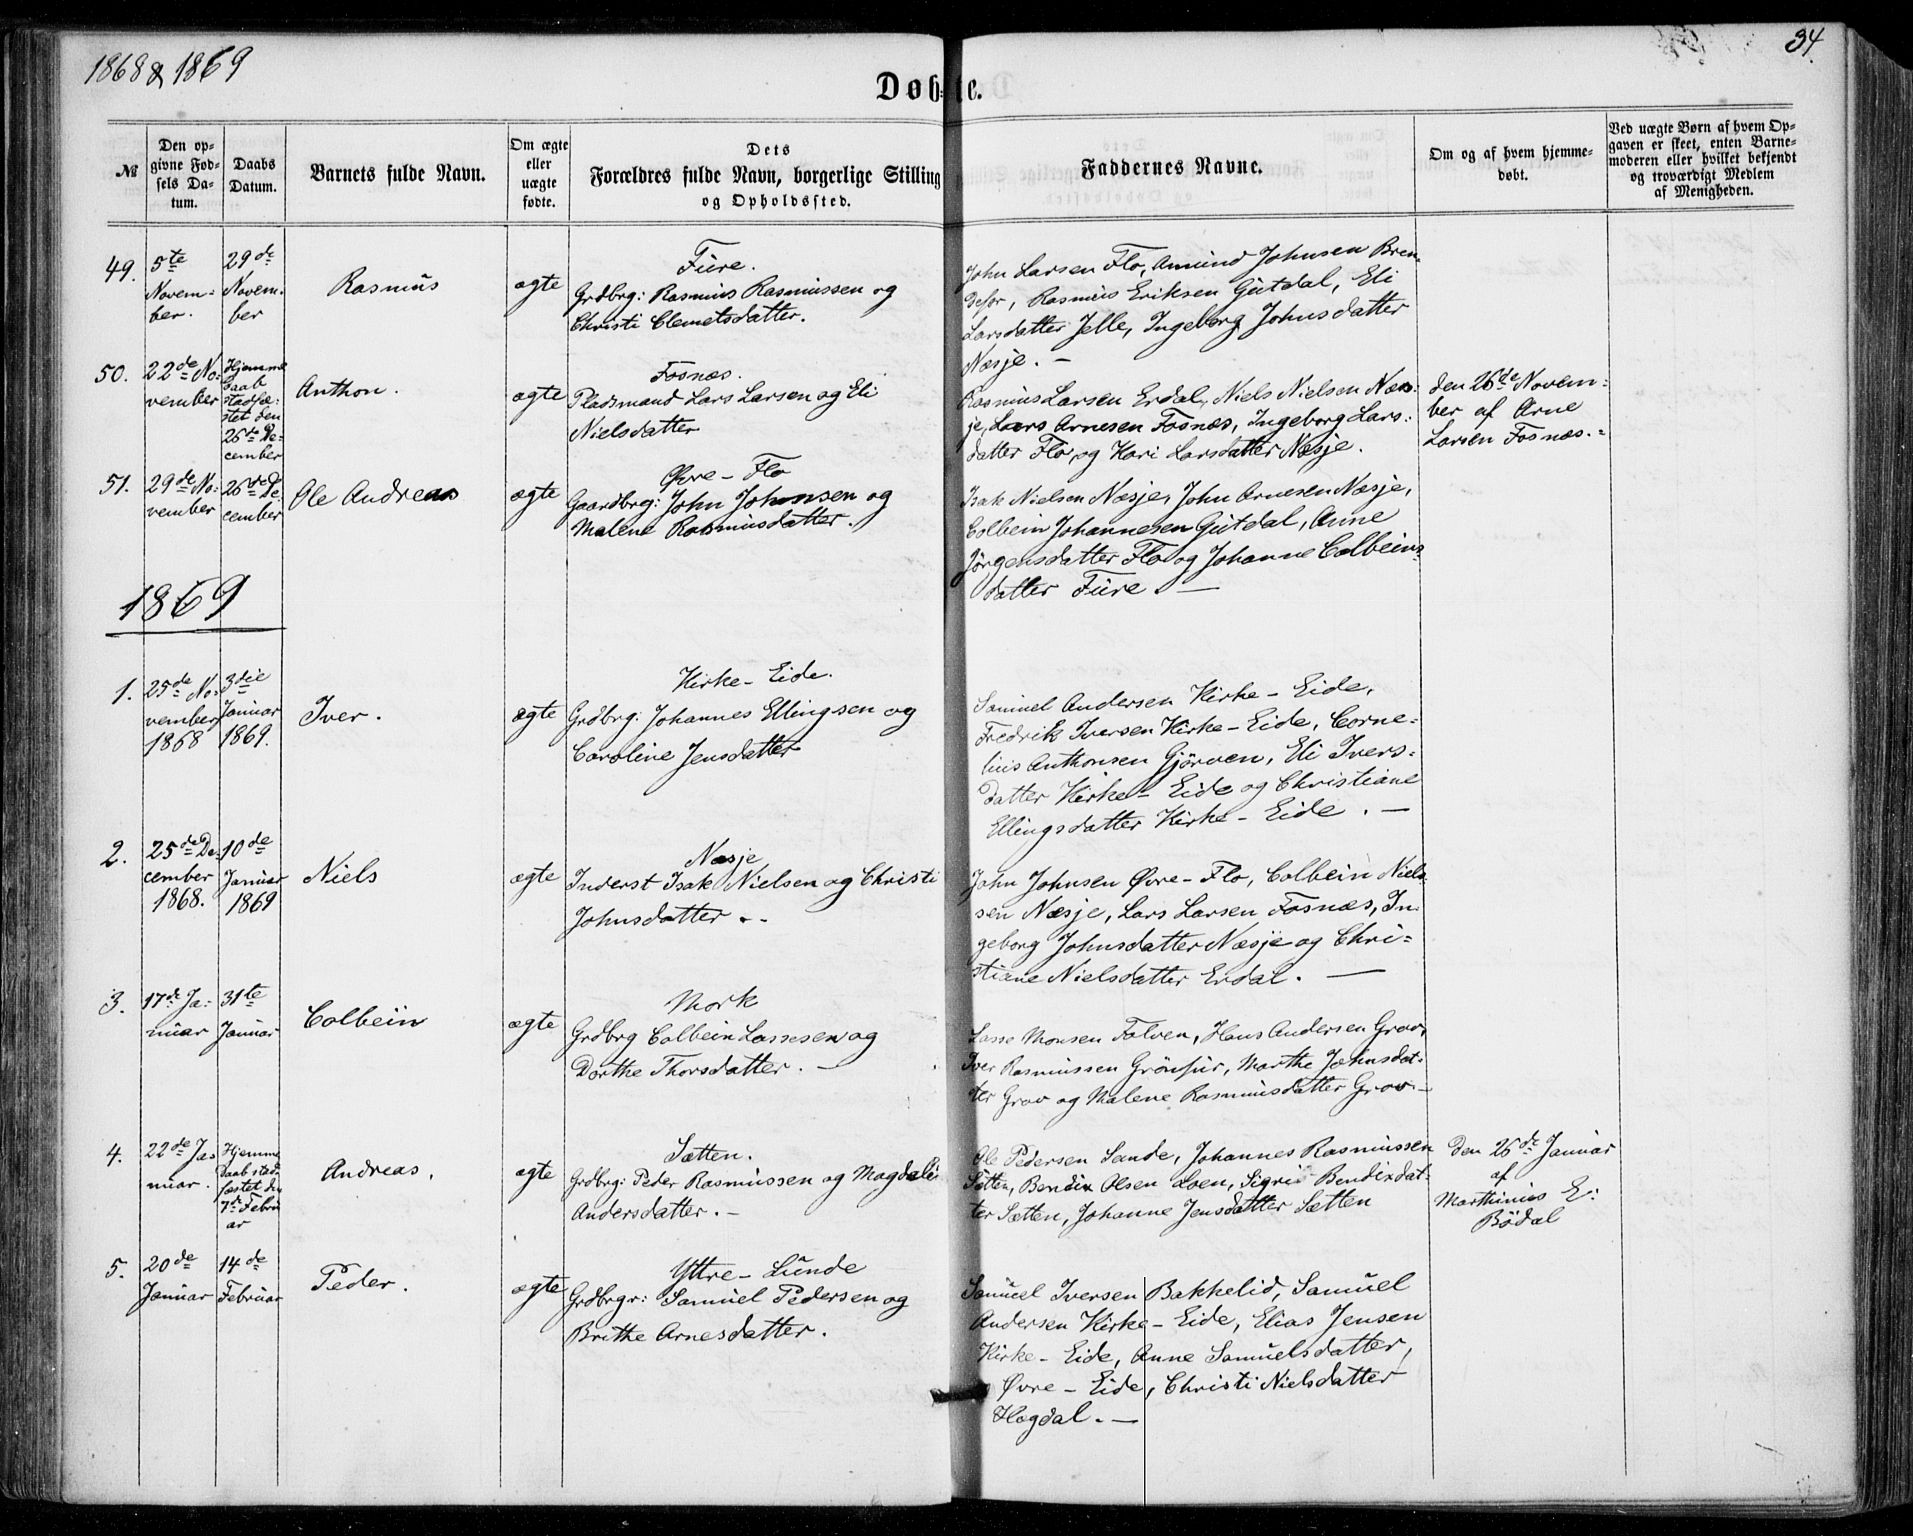 1868 & 1869
34.
Døbte.
№
Den op-
givne Fød-
sels Da-
tum.
Daabs
Datum.
Barnets fulde Navn.
Om ægte
eller
uægte
fødte.
Dets
Forældres fulde Navn, borgerlige Stilling
og Opholdssted.
Faddernes Navne.
Om og af hvem hjemme-
døbt.
Ved uægte Børn af hvem Op-
gaven er skeet, enten Barne-
moderen eller hvilket bekjendt
og troværdigt Medlem
af Menigheden.
49.
5te
Novem-
ber.
29de
Novem-
ber
Rasmus
ægte
Fure.
Grdbrg: Rasmus Rasmussen og
Christi Clemetsdatter.
John Larsen Flo, Amund Johnsen Bren-
defor, Rasmus Eriksen Gutdal, Eli
Larsdatter Jelle, Ingeborg Johnsdatter
Næsje. —
50.
22de No-
vember
Hjemme
Daab
stadfæ-
stet den
26de De-
cember
Anthon.
ægte
Fosnæs.
Pladsmand Lars Larsen og Eli
Nielsdatter
Rasmus Larsen Erdal, Niels Nielsen Næs-
je, Lars Arnesen Fosnæs, Ingeborg Lars-
datter Flo og Kari Larsdatter Næsje.
den 26de Novem-
ber af Arne
Larsen Fosnæs.-
51.
29de No-
vember
26de De-
cember
Ole Andreas
ægte
Øvre-Flo
Gaardbrg: John Johnsen og
Malene Rasmusdatter.
Isak Nielsen Næsje, John Arnesen Næsje,
Colbein Johannesen Gutdal, Anne
Jørgensdatter Flo og Johanne Colbeins-
datter Fure. —
1869
1.
25de No-
vember
1868
3die
Januar
1869.
Iver.
ægte
Kirke-Eide.
Grdbrg: Johannes Ellingsen og
Caroline Jensdatter
Samuel Andersen Kirke-Eide,
Fredrik Iversen Kirke-Eide, Corne-
lius Anthonsen Gjørven, Eli Ivers-
datter Kirke-Eide og Christiane
Ellingsdatter Kirke-Eide. —
2.
25de De-
cember
1868.
10de
Januar
1869
Niels
ægte
Næsje
Inderst Isak Nielsen og Christi
Johnsdatter.-
John Johnsen Øvre-Flo, Colbein Niel-
sen Næsje, Lars Larsen Fosnæs, In-
geborg Johnsdatter Næsje og Chri-
stiane Nielsdatter Erdal. —
3.
17de Ja-
nuar
31te
Januar
Colbein
ægte
Mork
Grdbrg Colbein Lassesen og
Dorthe Thorsdatter. —
Lasse Monsen Folven, Hans Andersen Grov,
Iver Rasmussen Grönfur, Marthe Johnsdat-
ter Grov og Malene Rasmusdatter Grov —
4.
22de Ja-
nuar.
Hjemme
Daab stad-
fæstet den
7de Febru
ar
Andreas.
ægte
Sætten.
Grdbrg: Peder Rasmussen og Magdali
Andersdatter.-
Ole Pedersen Sande, Johannes Rasmussen
Sætten, Bendix Olsen Loen, Sigri Bendixdat-
ter Sætten, Johanne Jensdatter Sætten
Den 26de Januar
af
Marthinus E:
Bödal
5.
20de
Januar
14de
Februar
Peder.
ægte
Yttre-Lunde
Grdbrgr: Samuel Pedersen og
Brithe Arnesdatter.
Samuel Iversen Bakkelid, Samuel
Andersen Kirke-Eide, Elias Jensen
Kirke-Eide, Anne Samuelsdatter,
Øvre-Eide, Christi Nielsdatter
Hogdal. —